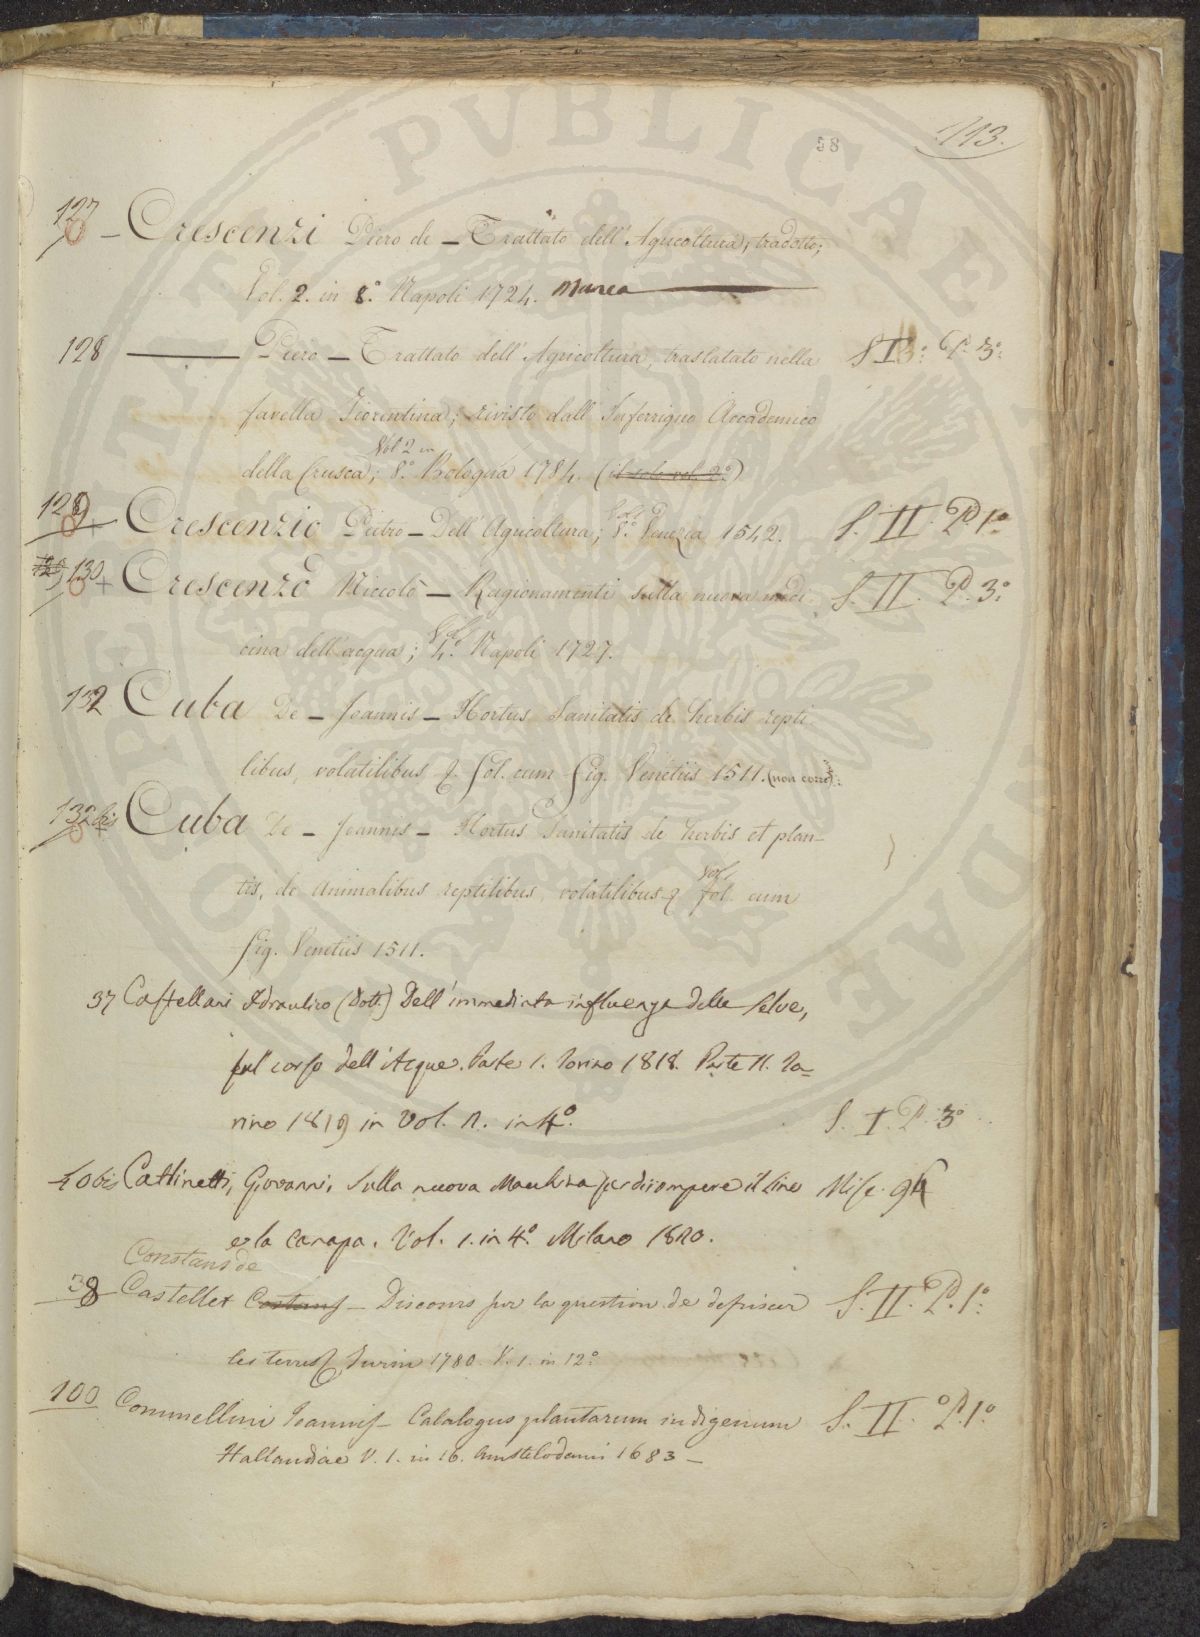 58
113.
127 Crescenzi Piero de — Trattato dell'Agricoltura, tradotto;
Vol. 2. in 8.° Napoli 1724. Manca
128 — Piero — Trattato dell'Agricoltura, traslatato nella S. I. P. 3.°
favella Fiorentina; rivisto dall'Inferrigno Accademico
Vol 2 in
della Crusca; 8.° Bologna 1784. (il solo vol. 2.°)
129 Crescenzio Pietro — Dell'Agricoltura; 8.° Venezia 1542. S. II. P. 1.°
129 130 + Crescenzo Niccolò — Ragionamenti sulla nuova medi- S. II. P. 3.°
cina dell'acqua; 4.° Napoli 1727.
132 Cuba De — Joannis — Hortus Sanitatis de herbis repti
libus, volatilibus & fol. cum fig. Venetiis 1511. (non corre):
132 bis Cuba De — Joannis — Hortus Sanitatis de herbis et plan-
tis, de animalibus reptilibus, volatilibus & fol. cum
fig. Venetiis 1511.
37 Castellani Idraulico (Dott.) Dell'immediata influenza delle Selve,
sul corso dell'Acque. Parte 1. Torino 1818. Parte II. To=
rino 1819 in Vol. 2. in 4.° S. I. P. 3.°
40 bis Cattinetti, Giovanni, Sulla nuova Macchina per dirompere il Lino Misc. 94
e la canapa. Vol. 1. in 4.° Milano 1820.
Constans de
38 Castellet Constans — Discours sur la question de defriser S. II. P. 1.°
les terres Turin 1780. V. 1. in 12.°
100 Commellini Joannis — Catalogus plantarum indigenum S. II. P. 1.°
Hallandiae V. 1. in 16. Amstelodami 1683 —